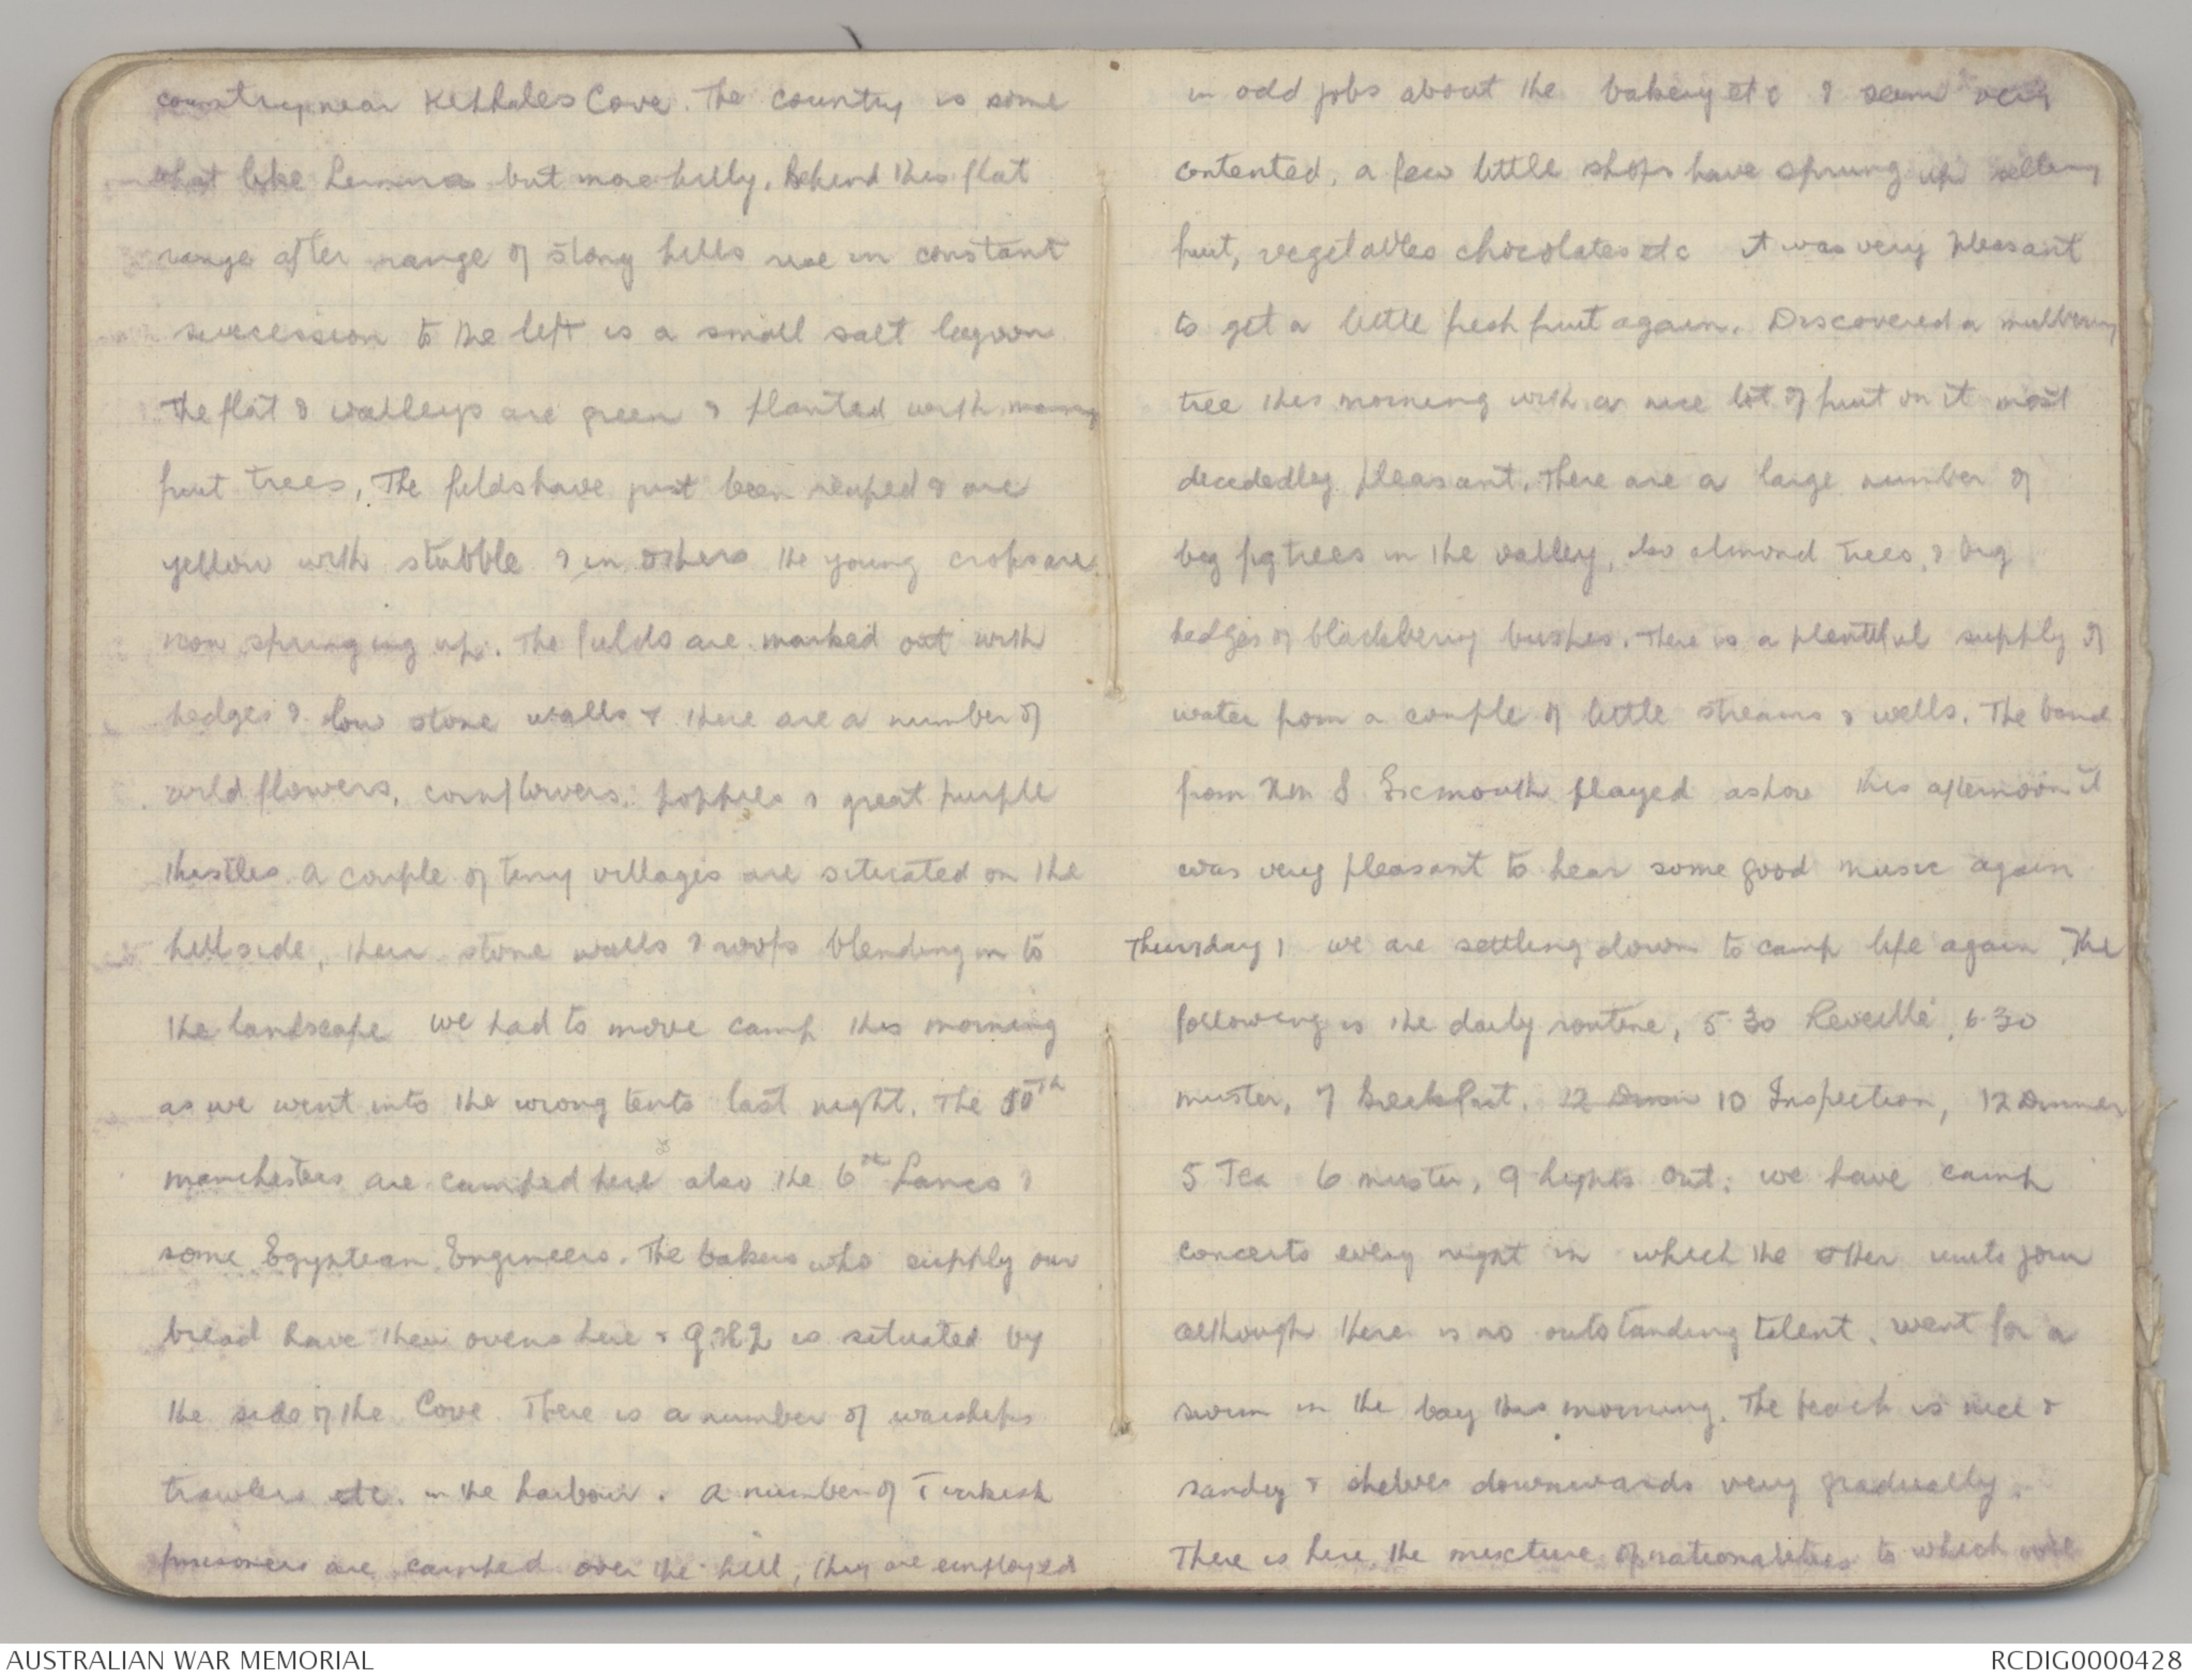 country near Kephalos Cove. The country is some
what like Lemnos but more hilly. Behind this flat
range after range of stony hills rise in constant
succession to the left is a small salt lagoon
The flat & valleys are green & planted with many
fruit trees, The fields have just been reaped & are
yellow with stubble & in others the young crops are
now springing up. The fields are marked out with
hedges & low stone walls & there are a number of
wild flowers, cornflowers, poppies & great purple
thistles a couple of tiny villages are situated on the
hillside, their stone walls & roofs blending in to
the landscape we had to move camp this morning
as we went into the wrong tents last night. The 50th
manchesters are camped here also the 6th Lancs &
some Egyptian Engineers. The bakers who supply our
bread have their ovens here & GHQ is situated by
the side of the Cove There is a number of warships
trawlers etc. in the harbour. a number of Turkish
prisoners are camped over the hill, they are employed
in odd jobs about the bakery etc & seem very
contented, a few little shops have sprung up selling
fruit, vegetables chocolates etc it was very pleasant
to get a little fresh fruit again. Discovered a mulberry
tree this morning with a nice lot of fruit on it most
decidedley pleasant. There are a large number of
big fig trees in the valley, also almond trees, & big
hedges of blackberry bushes. There is a plentiful supply of
water from a couple of little streams & wells. The band
from HMS Exmouth played ashore this afternoon it
was very pleasant to hear some good music again
Thursday 1 we are settling down to camp life again. The
following is the daily routine, 5.30 Reveille, 6.30
muster, 7 Breakfast. 12 10 Inspection, 12 Dinner
5 Tea 6 muster, 9 lights out; we have camp
concerts every night in which the other units join
although there is no outstanding talent. went for a
swim in the bay this morning. The beach is nice &
sandy & shelves downwards very gradually.
There is here the mixture of nationalities to which we
AUSTRALIAN WAR MEMORIAL
RCDIG0000428